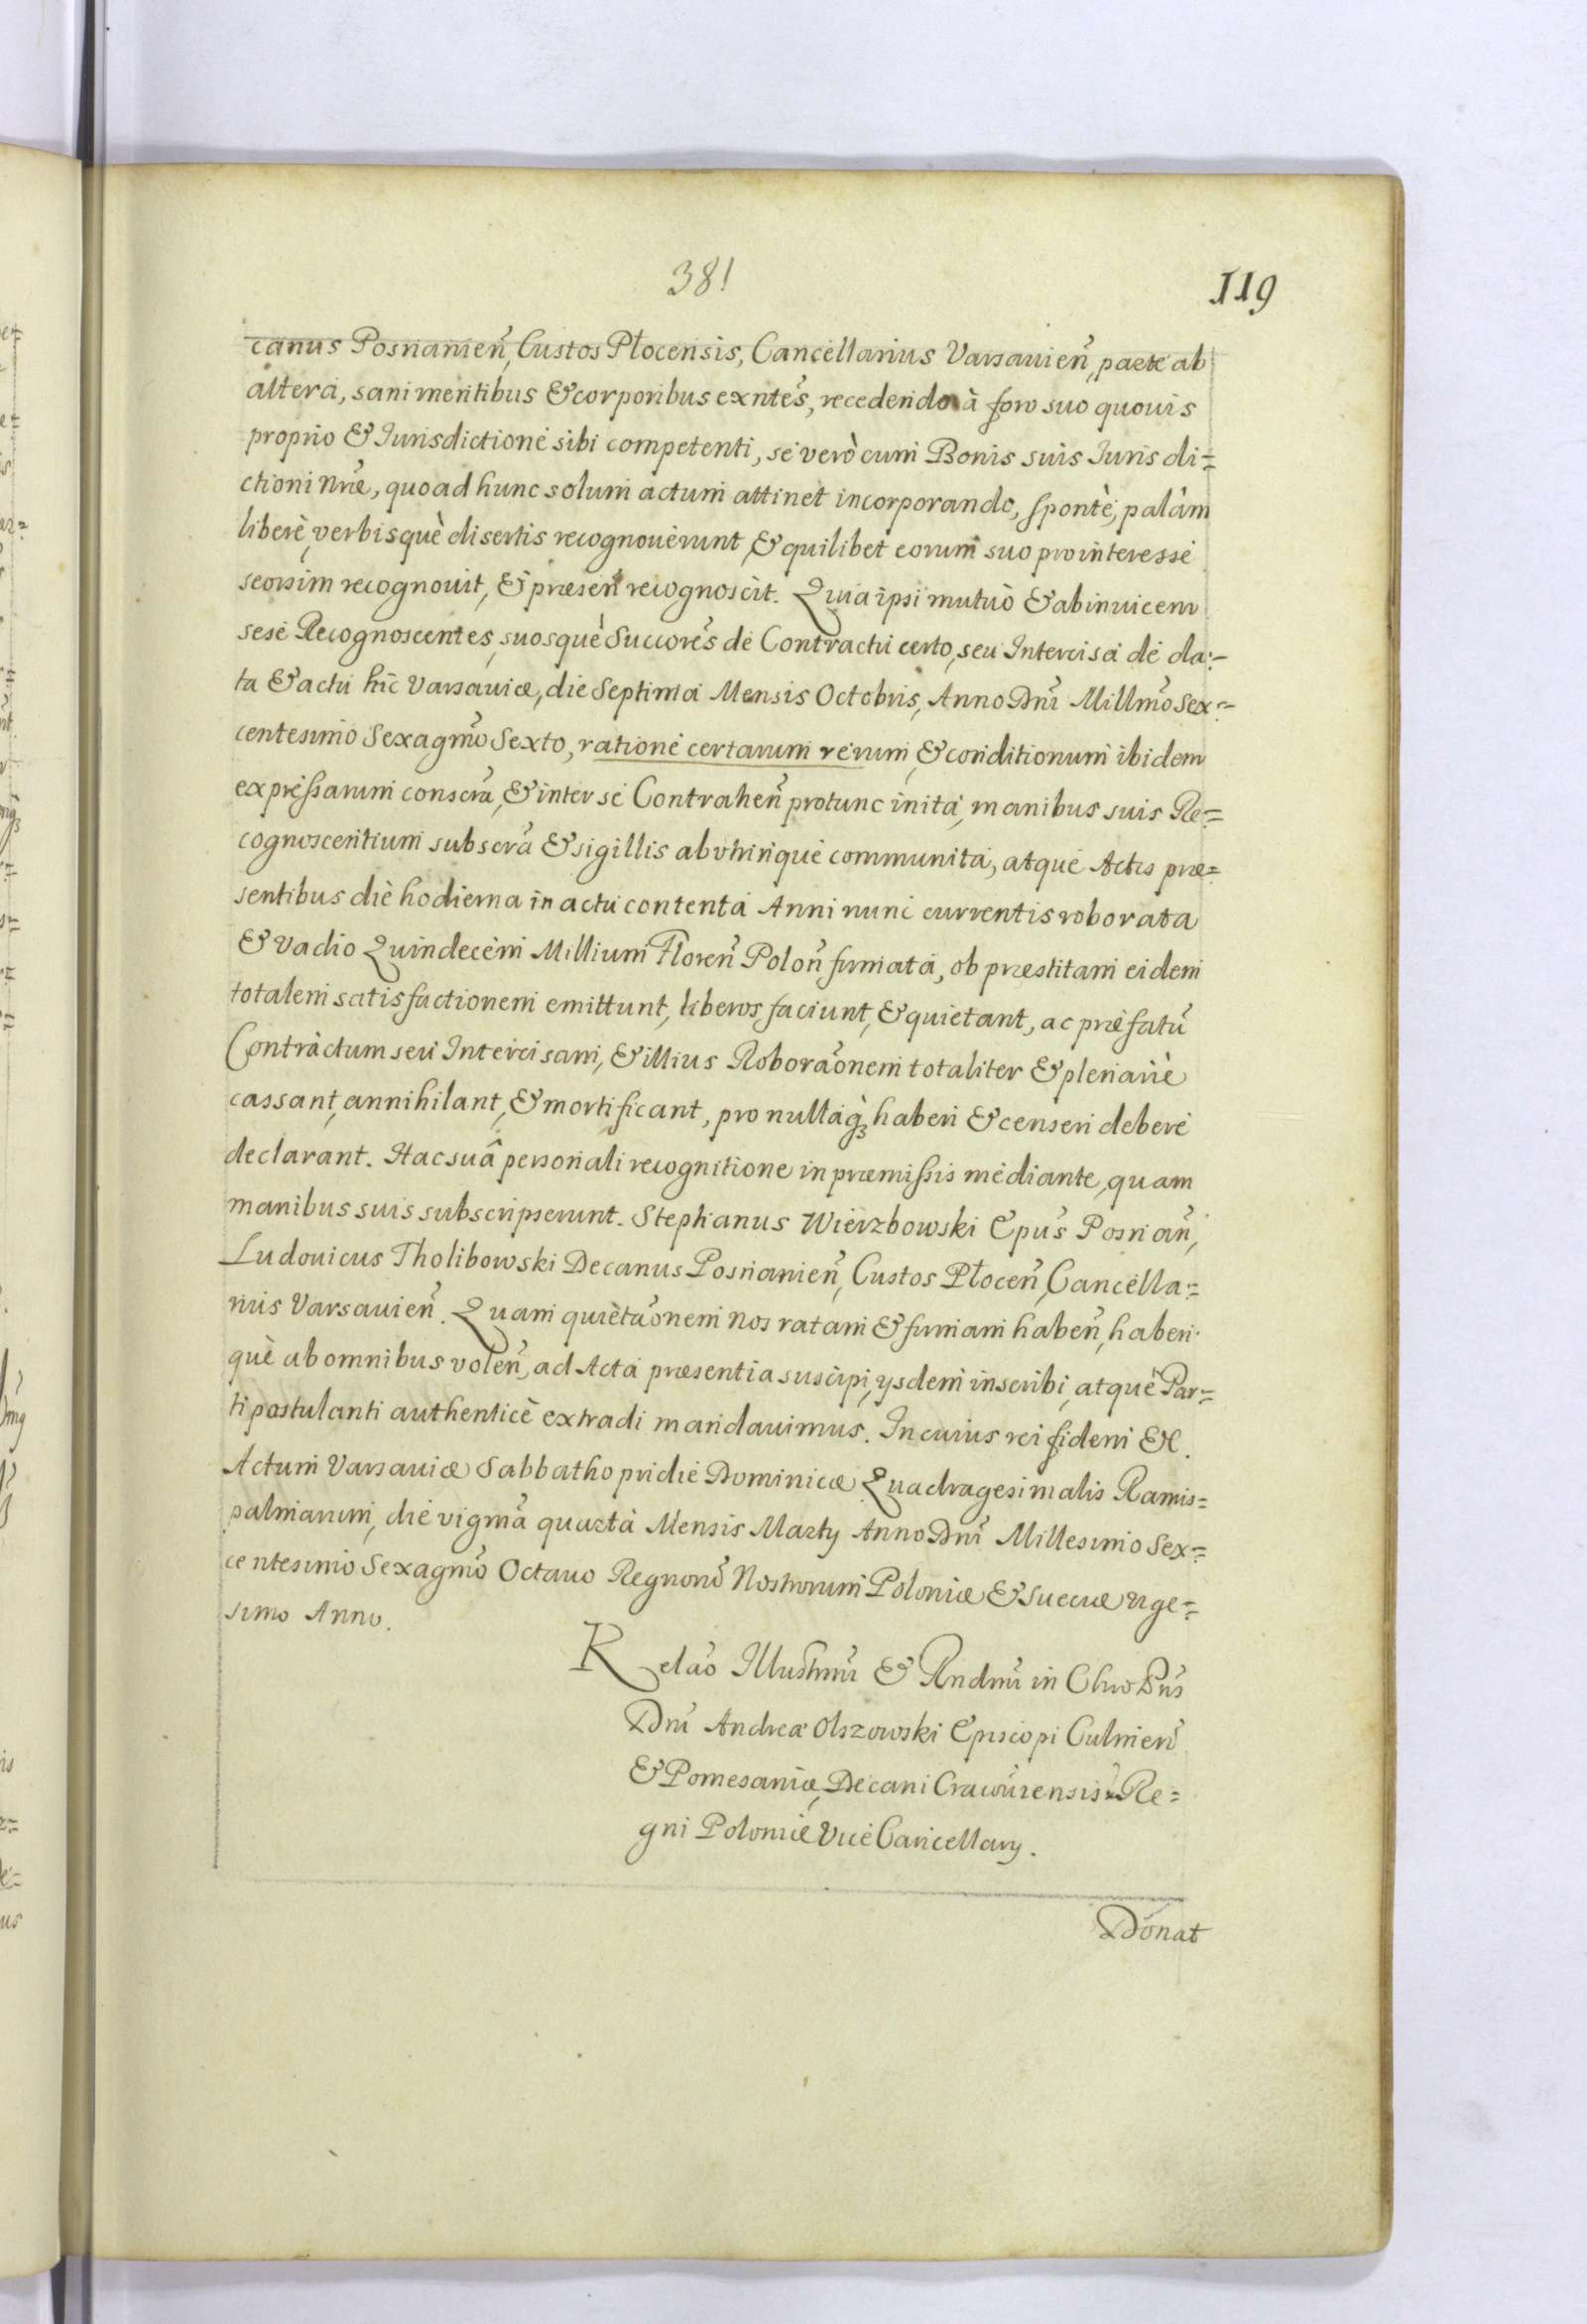 381
119
canus Posnanien̄, Custos Plocensis, Cancellarius Varsavien̄, parte ab
altera, sani mentibus & corporibus exn̄tes, recedendo à foro suo quouis
proprio & Iurisdictione sibi competenti, se verò cum Bonis suis Iuris di=
ctioni nr̄æ, quo ad hunc solum actum attinet incorporando, spontè, palàm
liberè, verbisquè disertis recognouerunt, & quilibet eorum suo pro interesse
seorsim recognouit, & præsen̄ recognoscit. Quia ipsi mutuò & abinuicem
sese Recognoscentes, suosquè Succores̄ de Contractu certo, seu Intercisa de da=
ta & actu hic Varsauiæ, die Septima Mensis Octobris, Anno Dn̄i Millm̄o Sex=
centesimo Sexagm̄o Sexto, ratione certarum rerum, & conditionum ibidem
expressarum conscrā, & inter se Contrahen̄ protunc inita, manibus suis Re=
cognoscentium subscrā & sigillis abvtrinque communita, atque Actis præ=
sentibus die hodierna in actu contenta Anni nunc currentis roborata
& Vadio Quindecem Millium Floren̄ Polon̄ firmata, ob præstitam eidem
totalem satisfactionem emittunt, liberos faciunt, & quietant, ac præfatū
Contractum seu Intercisam, & illius Roborāonem totaliter & plenariè
cassant, annihilant, & mortificant, pro nullaq́ꝫ haberi & censeri debere
declarant. Hac suâ personali recognitione in præmissis mediante, quam
manibus suis subscripserunt. Stephanus Wierzbowski Ep̄us Posnan̄,
Ludouicus Tholibowski Decanus Posnanien̄, Custos Plocen̄, Cancella=
rius Varsauien̄. Quam quietāonem Nos ratam & firmam haben̄, haberi
què ab omnibus volen̄, ad Acta præsentia suscipi, ysdem inscribi, atquè Par=
ti postulanti authenticè extradi mandauimus. In cuius rei fidem &c.
Actum Varsauiæ Sabbatho pridie Dominicæ Quadragesimalis Ramis=
palmarum, die vigm̄a quarta Mensis Marty Anno Dn̄i Millesimo Sex=
centesimo Sexagm̄o Octauo Regnorū Nostrorum Poloniæ & Sueciæ vige=
simo Anno.
Relāo Illustrm̄i & Rndm̄i in Chro Pr̄is
Dn̄i Andreæ Olszowski Episcopi Culmen̄
& Pomesaniæ, Decani Cracouiensis Re=
gni Poloniæ Vice Cancellary.
Donat